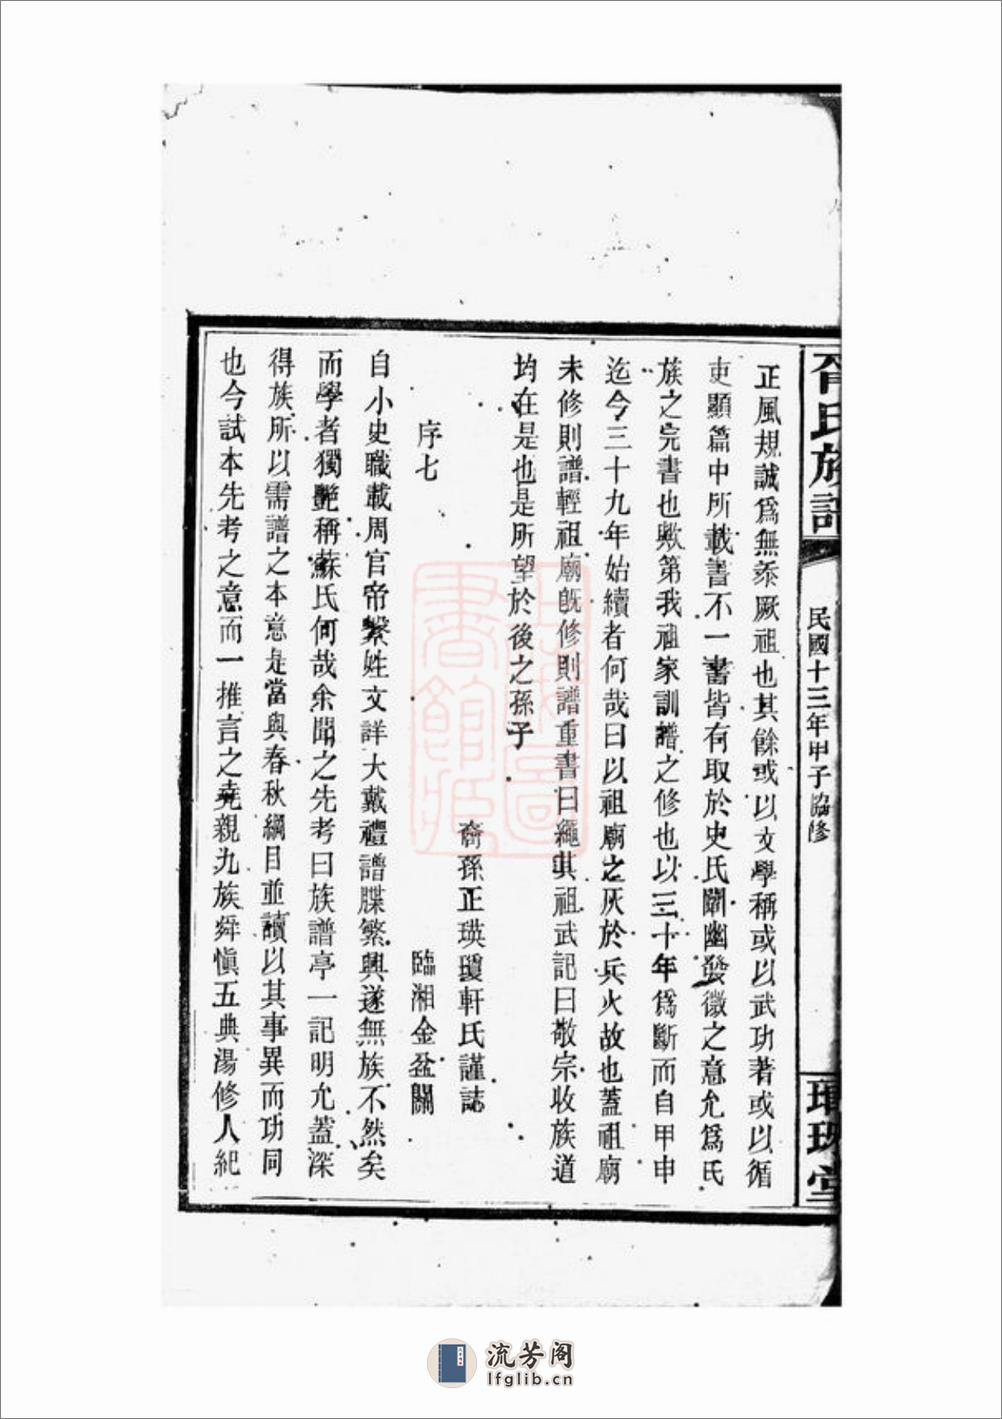 胥氏族譜
民國十三年甲子協修
正風規誠爲無忝厥祖也其餘或以文學稱或以武功著或以循
吏顯篇中所載書不一書皆有取於史氏闡幽發微之意允爲氏
族之完書也歟第我祖家訓譜之修也以三十年爲斷而自甲申
迄今三十九年始續者何哉曰以祖廟之灰於兵火故也蓋祖廟
未修則譜輕祖廟旣修則譜重書曰繩其祖武記曰敬宗收族道
均在是也是所望於後之孫子
裔孫正瑛瓊軒氏謹誌
序七
臨湘金盆關
自小史職載周官帝繫姓文詳大戴禮譜牒繁興遂無族不然矣
而學者獨艷稱蘇氏何哉余聞之先考曰族譜亭一記明允蓋深
得族所以需譜之本意是當與春秋綱目並讀以其事異而功同
也今試本先考之意而一推言之堯親九族舜愼五典湯修人紀
流芳阁
lfglib.cn